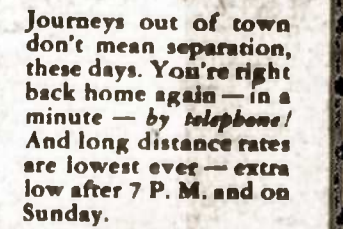 Journeys out of town
don't mean separation,
these days. You're right
back home again — in a
minute — by telephone!
And long distance rates
are lowest ever — extra
low after 7 P. M. and on
Sunday.